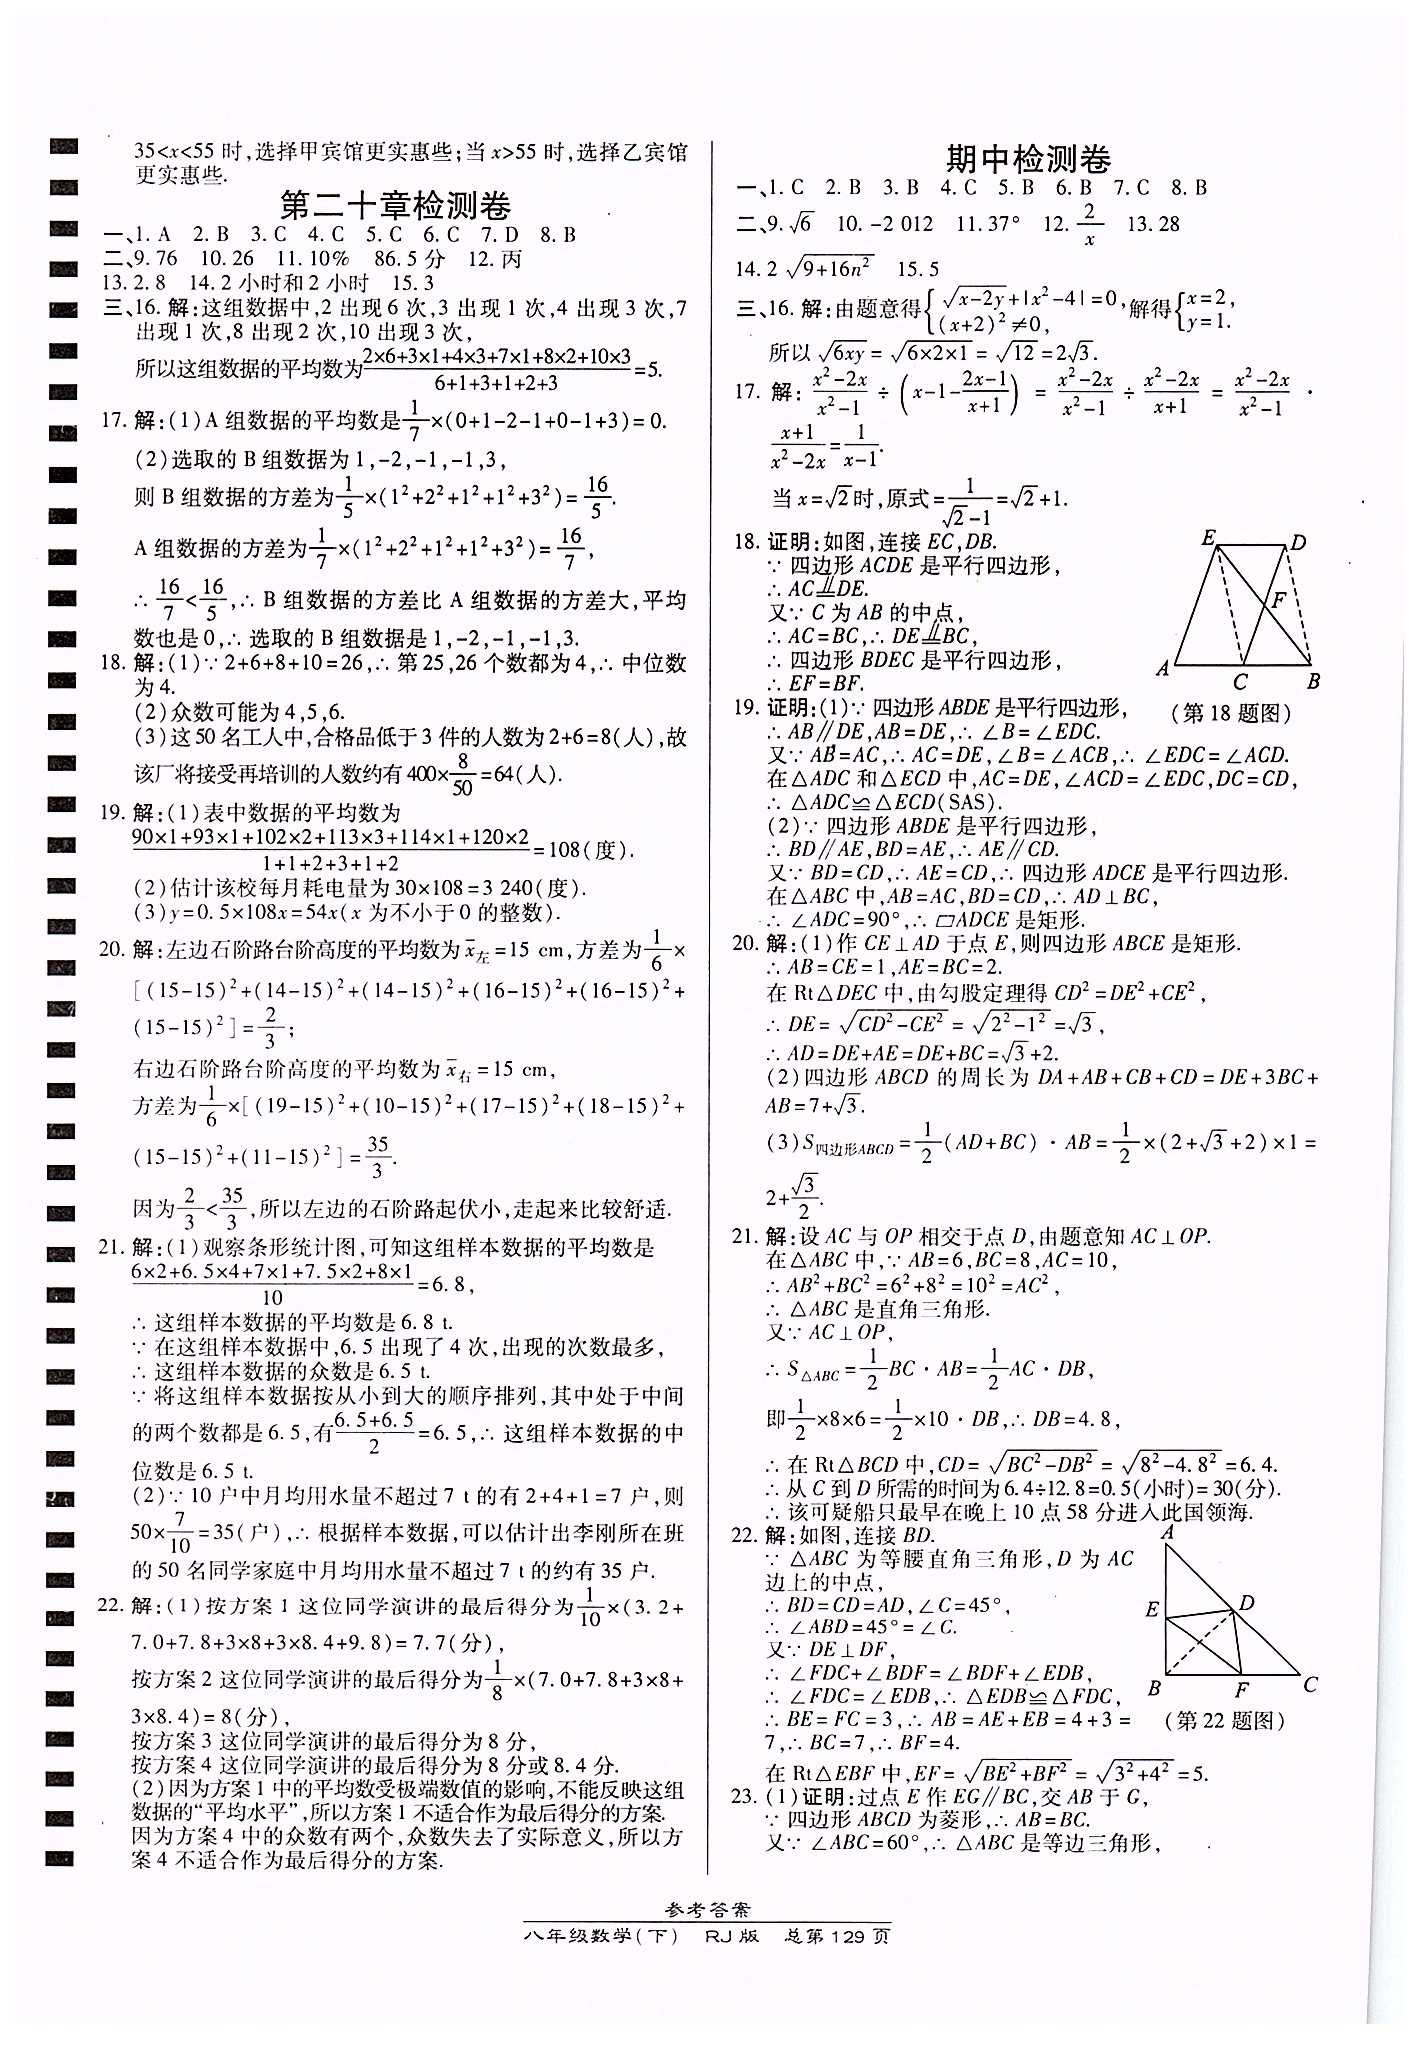 35<x<55 时,选择甲宾馆更实惠些;当 x>55 时,选择乙宾馆
更实惠些.
第二十章检测卷
一、1. A 2. B 3. C 4. C 5. C 6. C 7. D 8. B
二、9. 76 10. 26 11. 10% 86. 5 分 12. 丙
13. 2. 8 14. 2 小时和 2 小时 15. 3
三、16. 解:这组数据中,2 出现 6 次,3 出现 1 次,4 出现 3 次,7
出现 1 次,8 出现 2 次,10 出现 3 次,
所以这组数据的平均数为(2×6+3×1+4×3+7×1+8×2+10×3)/(6+1+3+1+2+3)=5.
17. 解:(1)A 组数据的平均数是1/7×(0+1-2-1+0-1+3)=0.
(2)选取的 B 组数据为 1,-2,-1,-1,3,
则 B 组数据的方差为1/5×(1²+2²+1²+1²+3²)=16/5.
A 组数据的方差为1/7×(1²+2²+1²+1²+3²)=16/7,
∴ 16/7<16/5,∴ B 组数据的方差比 A 组数据的方差大,平均
数也是 0,∴ 选取的 B 组数据是 1,-2,-1,-1,3.
18. 解:(1)∵ 2+6+8+10=26,∴ 第 25,26 个数都为 4,∴ 中位数
为 4.
(2)众数可能为 4,5,6.
(3)这 50 名工人中,合格品低于 3 件的人数为 2+6=8(人),故
该厂将接受再培训的人数约有 400×8/50=64(人).
19. 解:(1)表中数据的平均数为
(90×1+93×1+102×2+113×3+114×1+120×2)/(1+1+2+3+1+2)=108(度).
(2)估计该校每月耗电量为 30×108=3 240(度).
(3)y=0. 5×108x=54x(x 为不小于 0 的整数).
20. 解:左边石阶路台阶高度的平均数为 x̄左=15 cm,方差为1/6×
[(15-15)²+(14-15)²+(14-15)²+(16-15)²+(16-15)²+
(15-15)²]=2/3;
右边石阶路台阶高度的平均数为 x̄右=15 cm,
方差为1/6×[(19-15)²+(10-15)²+(17-15)²+(18-15)²+
(15-15)²+(11-15)²]=35/3.
因为2/3<35/3,所以左边的石阶路起伏小,走起来比较舒适.
21. 解:(1)观察条形统计图,可知这组样本数据的平均数是
(6×2+6. 5×4+7×1+7. 5×2+8×1)/10=6. 8,
∴ 这组样本数据的平均数是 6. 8 t.
∵ 在这组样本数据中,6. 5 出现了 4 次,出现的次数最多,
∴ 这组样本数据的众数是 6. 5 t.
∵ 将这组样本数据按从小到大的顺序排列,其中处于中间
的两个数都是 6. 5,有(6. 5+6. 5)/2=6. 5,∴ 这组样本数据的中
位数是 6. 5 t.
(2)∵ 10 户中月均用水量不超过 7 t 的有 2+4+1=7 户,则
50×7/10=35(户),∴ 根据样本数据,可以估计出李刚所在班
的 50 名同学家庭中月均用水量不超过 7 t 的约有 35 户.
22. 解:(1)按方案 1 这位同学演讲的最后得分为1/10×(3. 2+
7. 0+7. 8+3×8+3×8. 4+9. 8)=7. 7(分),
按方案 2 这位同学演讲的最后得分为1/8×(7. 0+7. 8+3×8+
3×8. 4)=8(分),
按方案 3 这位同学演讲的最后得分为 8 分,
按方案 4 这位同学演讲的最后得分为 8 分或 8. 4 分.
(2)因为方案 1 中的平均数受极端数值的影响,不能反映这组
数据的“平均水平”,所以方案 1 不适合作为最后得分的方案.
因为方案 4 中的众数有两个,众数失去了实际意义,所以方
案 4 不适合作为最后得分的方案.
期中检测卷
一、1. C 2. B 3. B 4. C 5. B 6. B 7. C 8. B
二、9. √6 10. -2 012 11. 37° 12. 2/x 13. 28
14. 2√(9+16n²) 15. 5
三、16. 解:由题意得{√(x-2y)+|x²-4|=0, (x+2)²≠0, 解得{x=2, y=1.
所以√(6xy)=√(6×2×1)=√12=2√3.
17. 解:(x²-2x)/(x²-1)÷(x-1-(2x-1)/(x+1))=(x²-2x)/(x²-1)÷(x²-2x)/(x+1)=(x²-2x)/(x²-1)·
(x+1)/(x²-2x)=1/(x-1).
当 x=√2时,原式=1/(√2-1)=√2+1.
18. 证明:如图,连接 EC,DB.
∵ 四边形 ACDE 是平行四边形,
∴ AC⫫DE.
又∵ C 为 AB 的中点,
∴ AC=BC,∴ DE⫫BC,
∴ 四边形 BDEC 是平行四边形,
∴ EF=BF.
E D
F
A C B
(第 18 题图)
19. 证明:(1)∵ 四边形 ABDE 是平行四边形,
∴ AB∥DE,AB=DE,∴ ∠B=∠EDC.
又∵ AB=AC,∴ AC=DE,∠B=∠ACB,∴ ∠EDC=∠ACD.
在△ADC 和△ECD 中,AC=DE,∠ACD=∠EDC,DC=CD,
∴ △ADC≌△ECD(SAS).
(2)∵ 四边形 ABDE 是平行四边形,
∴ BD∥AE,BD=AE,∴ AE∥CD.
又∵ BD=CD,∴ AE=CD,∴ 四边形 ADCE 是平行四边形.
在△ABC 中,AB=AC,BD=CD,∴ AD⊥BC,
∴ ∠ADC=90°,∴ ▱ADCE 是矩形.
20. 解:(1)作 CE⊥AD 于点 E,则四边形 ABCE 是矩形.
∴ AB=CE=1,AE=BC=2.
在 Rt△DEC 中,由勾股定理得 CD²=DE²+CE²,
∴ DE=√(CD²-CE²)=√(2²-1²)=√3,
∴ AD=DE+AE=DE+BC=√3+2.
(2)四边形 ABCD 的周长为 DA+AB+CB+CD=DE+3BC+
AB=7+√3.
(3)S四边形ABCD=1/2(AD+BC)·AB=1/2×(2+√3+2)×1=
2+√3/2.
21. 解:设 AC 与 OP 相交于点 D,由题意知 AC⊥OP.
在△ABC 中,∵ AB=6,BC=8,AC=10,
∴ AB²+BC²=6²+8²=10²=AC²,
∴ △ABC 是直角三角形.
又∵ AC⊥OP,
∴ S△ABC=1/2BC·AB=1/2AC·DB,
即1/2×8×6=1/2×10·DB,∴ DB=4. 8,
∴ 在 Rt△BCD 中,CD=√(BC²-DB²)=√(8²-4. 8²)=6. 4.
∴ 从 C 到 D 所需的时间为 6. 4÷12. 8=0. 5(小时)=30(分).
∴ 该可疑船只最早在晚上 10 点 58 分进入此国领海.
22. 解:如图,连接 BD.
∵ △ABC 为等腰直角三角形,D 为 AC
边上的中点,
∴ BD=CD=AD,∠C=45°,
∴ ∠ABD=45°=∠C.
又∵ DE⊥DF,
∴ ∠FDC+∠BDF=∠BDF+∠EDB,
∴ ∠FDC=∠EDB,∴ △EDB≌△FDC,
∴ BE=FC=3,∴ AB=AE+EB=4+3=
7,∴ BC=7,∴ BF=4.
在 Rt△EBF 中,EF=√(BE²+BF²)=√(3²+4²)=5.
A
E D
B F C
(第 22 题图)
23. (1)证明:过点 E 作 EG∥BC,交 AB 于 G,
∵ 四边形 ABCD 为菱形,∴ AB=BC.
又∵ ∠ABC=60°,∴ △ABC 是等边三角形,
参考答案
八年级数学(下) RJ 版 总第 129 页